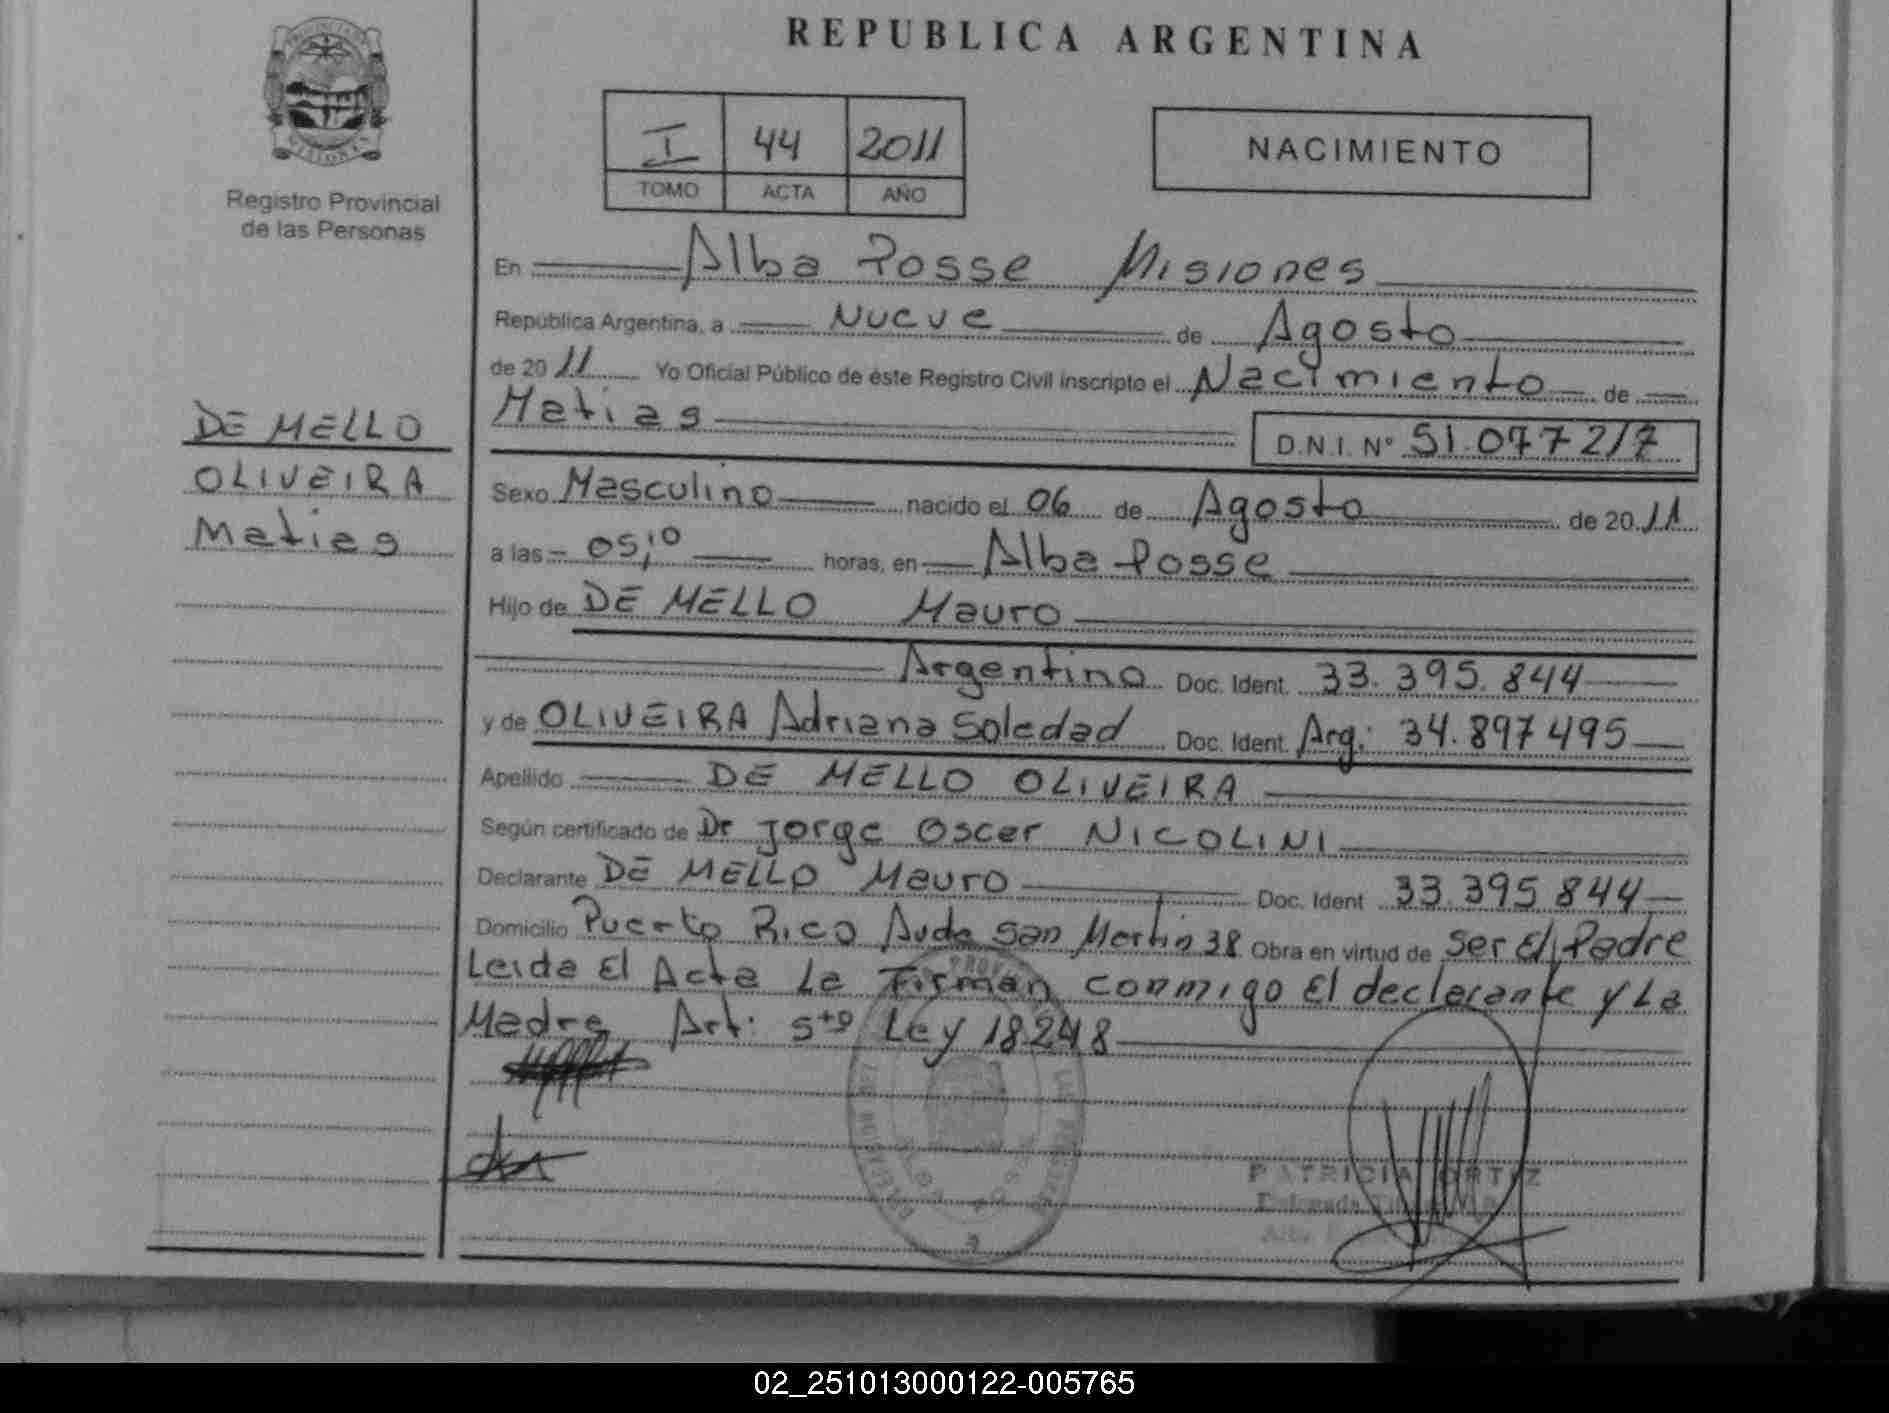 REPUBLICA ARGENTINA
I 44 2011
TOMO ACTA AÑO
NACIMIENTO
Registro Provincial
de las Personas
DE MELLO
OLIVEIRA
Matias
En Alba Posse Misiones
República Argentina, a Nueve de Agosto
de 2011 Yo Oficial Público de éste Registro Civil inscripto el Nacimiento de
Matias D.N.I. Nº 51.077217
Sexo Masculino nacido el 06 de Agosto de 2011
a las 05,10 horas, en Alba Posse
Hijo de DE MELLO Mauro
Argentino Doc. Ident. 33.395.844
y de OLIVEIRA Adriana Soledad Doc. Ident. Arg: 34.897495
Apellido DE MELLO OLIVEIRA
Según certificado de Dr Jorge Oscar NICOLINI
Declarante DE MELLO Mauro Doc. Ident 33.395844
Domicilio Puerto Rico Avda San Martin 38 Obra en virtud de ser El Padre
Leida El Acta La Firman conmigo El declarante y La
Madre Art: 5to Ley 18248
PATRICIA ORTIZ
02_251013000122-005765